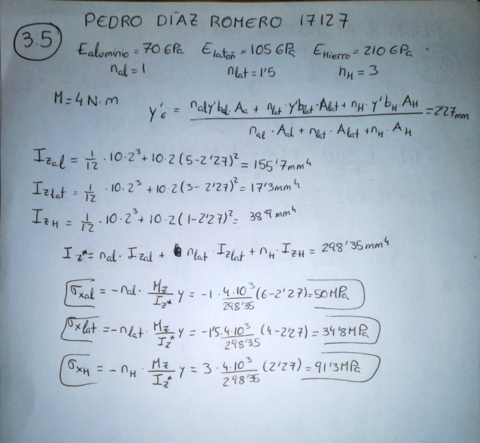 PEDRO DÍAZ ROMERO 17127
3.5
E_aluminio = 70 GPa E_latoń = 105 GPa E_Hierro = 210 GPa
n_al = 1 n_lat = 1'5 n_H = 3
M = 4 N·m y'_G = (n_al y'b_al · A_a + n_lat · y'b_lat · A_lat + n_H · y'b_H A_H) / (n_al · A_al + n_lat · A_lat + n_H · A_H) = 2'27 mm
I_zal = 1/12 · 10·2³ + 10·2 (5-2'27)² = 155'7 mm⁴
I_zlat = 1/12 · 10·2³ + 10·2 (3-2'27)² = 17'3 mm⁴
I_zH = 1/12 · 10·2³ + 10·2 (1-2'27)² = 38'9 mm⁴
I_z* = n_al · I_zal + n_lat · I_zlat + n_H · I_zH = 298'35 mm⁴
σ_xal = -n_al · M_z/I_z* y = -1 · 4·10³/298'35 (6-2'27) = 50 MPa
σ_xlat = -n_lat · M_z/I_z* y = -1'5 · 4·10³/298'35 (4-2'27) = 34'8 MPa
σ_xH = -n_H · M_z/I_z* y = 3 · 4·10³/298'35 (2'27) = 91'3 MPa